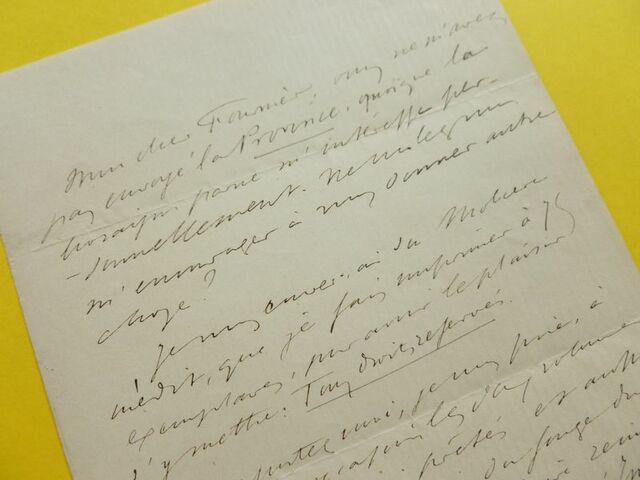 Mon cher Fournier, vous ne m'avez
pas envoyé la Province, quoique la
livraison parue m'intéresse per-
-sonnellement. ne voulez vous
m'encourager à vous donner autre
chose?
Je vous enverrai du Moliere
inédit, que je fais imprimer à 75
exemplaires, pour avoir le plaisir
d'y mettre: Tous droits réservés.
je vous prie, à
les deux volumes
prêtés et
du